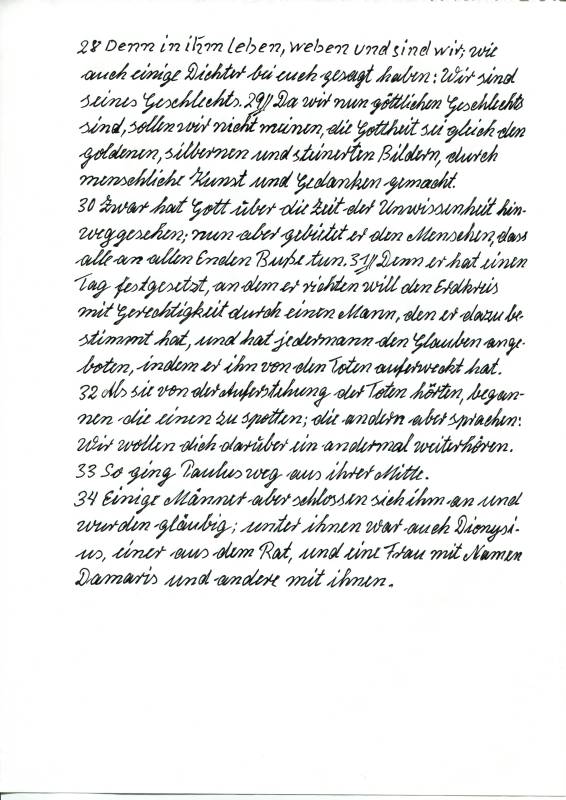 28 Denn in ihm leben, weben und sind wir; wie
auch einige Dichter bei euch gesagt haben: Wir sind
seines Geschlechts. 29// Da wir nun göttlichen Geschlechts
sind, sollen wir nicht meinen, die Gottheit sei gleich den
goldenen, silbernen und steinerten Bildern, durch
menschliche Kunst und Gedanken gemacht.
30 Zwar hat Gott über die Zeit der Unwissenheit hin-
weggesehen; nun aber gebietet er den Menschen, dass
alle an allen Enden Buße tun. 31// Denn er hat einen
Tag festgesetzt, an dem er richten will den Erdkreis
mit Gerechtigkeit durch einen Mann, den er dazu be-
stimmt hat, und hat jedermann den Glauben ange-
boten, indem er ihn von den Toten auferweckt hat.
32 Als sie von der Auferstehung der Toten hörten, began-
nen die einen zu spotten; die andern aber sprachen:
Wir wollen dich darüber ein andermal weiterhören.
33 So ging Paulus weg aus ihrer Mitte.
34 Einige Männer aber schlossen sich ihm an und
wurden gläubig; unter ihnen war auch Dionysi-
us, einer aus dem Rat, und eine Frau mit Namen
Damaris und andere mit ihnen.